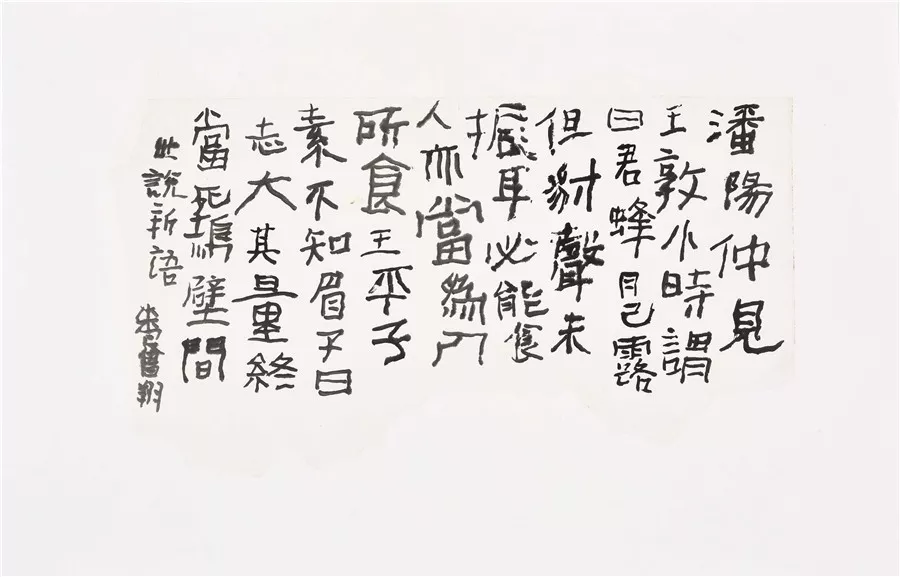 潘陽仲見
王敦小時謂
曰君蜂目已露
但豺聲未
振耳必能食
人亦當為人
所食王平子
素不知眉子曰
志大其量終
當死塢壁間
世說新語
曾翔